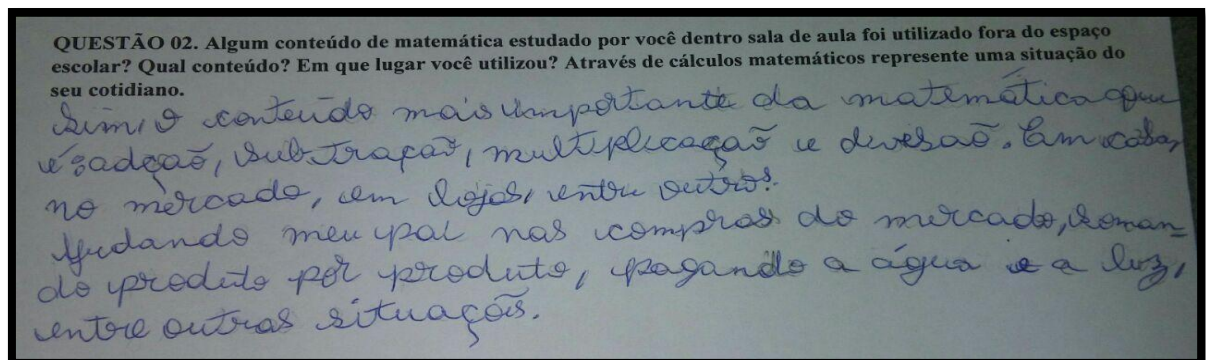 QUESTÃO 02. Algum conteúdo de matemática estudado por você dentro sala de aula foi utilizado fora do espaço
escolar? Qual conteúdo? Em que lugar você utilizou? Através de cálculos matemáticos represente uma situação do
seu cotidiano.
Sim, o conteúdo mais importante da matemática que
é: adeçaõ, subtraçaõ, multiplicaçaõ e devesaõ. Em casa,
no mercado, em lojas, entre outros.
Ajudando meu pai nas compras do mercado, soman=
do produto por produto, pagando a água e a luz,
entre outras situaçoẽs.